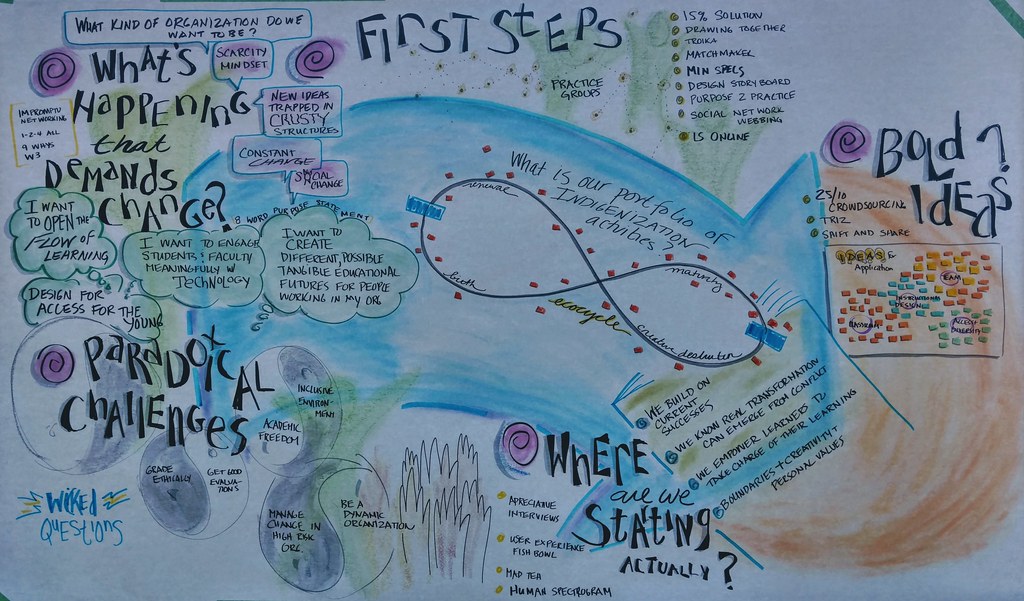 WHAT KIND OF ORGANIZATION DO WE
WANT TO BE?
WHAT'S
HAPPENING
that
DEMANDS
CHANGE?
SCARCITY
MINDSET
NEW IDEAS
TRAPPED IN
CRUSTY
STRUCTURES
CONSTANT
CHANGE
SOCIAL
CHANGE
IMPROMPTU
NETWORKING
1-2-4 ALL
9 WAYS
W3
8 WORD PURPOSE STATEMENT
I WANT
TO OPEN THE
FLOW OF
LEARNING
I WANT TO ENGAGE
STUDENTS & FACULTY
MEANINGFULLY W/
TECHNOLOGY
I WANT TO
CREATE
DIFFERENT, POSSIBLE
TANGIBLE EDUCATIONAL
FUTURES FOR PEOPLE
WORKING IN MY ORG
DESIGN FOR
ACCESS FOR THE
YOUNG
FIRST STEPS
PRACTICE
GROUPS
15% SOLUTION
DRAWING TOGETHER
TROIKA
MATCHMAKER
MIN SPECS
DESIGN STORYBOARD
PURPOSE 2 PRACTICE
SOCIAL NETWORK
WEBBING
LS ONLINE
BOLD
IDEAS?
25/10
CROWDSOURCING
TRIZ
SHIFT AND SHARE
IDEAS &
Application
TEAM
INSTRUCTIONAL
DESIGN
CLASSROOM
ACCESS &
DIVERSITY
What is our portfolio of
INDIGENIZATION
activities?
renewal
birth
maturing
creative destruction
ecocycle
PARADOXICAL
CHALLENGES
INCLUSIVE
ENVIRONMENT
ACADEMIC
FREEDOM
GRADE
ETHICALLY
GET GOOD
EVALUATIONS
MANAGE
CHANGE IN
HIGH RISK
ORG.
BE A
DYNAMIC
ORGANIZATION
WICKED
QUESTIONS
WHERE
are we
STATING
ACTUALLY?
APRECIATIVE
INTERVIEWS
USER EXPERIENCE
FISH BOWL
MAD TEA
HUMAN SPECTROGRAM
WE BUILD ON
CURRENT
SUCCESSES
WE KNOW REAL TRANSFORMATION
CAN EMERGE FROM CONFLICT
WE EMPOWER LEARNERS TO
TAKE CHARGE OF THEIR LEARNING
BOUNDARIES + CREATIVITY +
PERSONAL VALUES